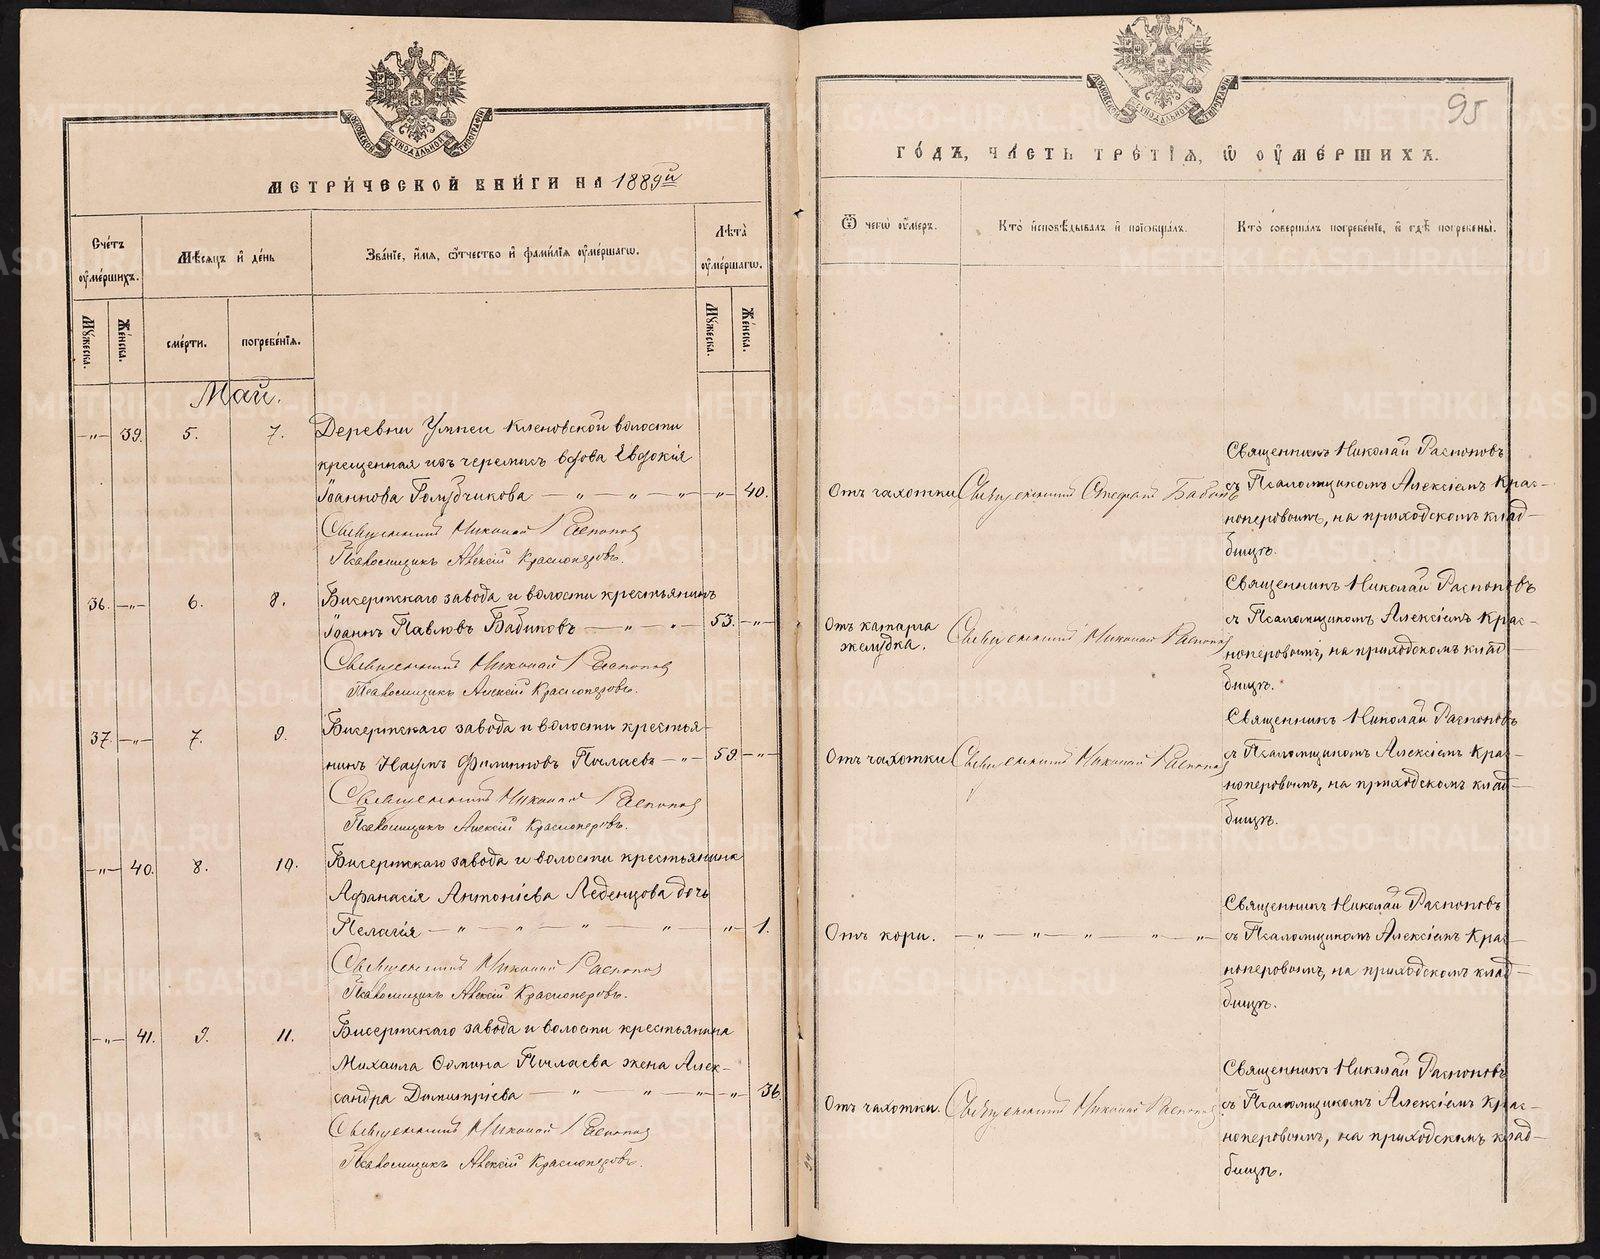 МОСКОВСКОЙ СѴНОДАЛЬНОЙ ТИПОГРАФІИ
МЕТРИ́ЧЕСКОЙ КНИ́ГИ НА 1889й
Сче́тъ оу҆ме́ршихъ.
Мѣ́сяцъ и҆ де́нь
Зва́ніе, и҆́мя, ѻ҆́тчество и҆ фами́лія оу҆ме́ршагѡ.
Лѣ́та оу҆ме́ршагѡ.
Мꙋ́жеска.
Же́нска.
сме́рти.
погребе́нія.
Мꙋ́жеска.
Же́нска.
Май.
—"— 39. 5. 7. Деревни Умпеи Кленовской волости
крещенная изъ черемисъ вдова Евдокія
Іоаннова Голубчикова — " — " — " — " — 40.
Священникъ Николай Распоповъ
Псаломщикъ Алексій Красноперовъ.
36. —"— 6. 8. Бисертскаго завода и волости крестьянинъ
Іоаннъ Павловъ Бабиковъ — " — " — 53. —"—
Священникъ Николай Распоповъ
Псаломщикъ Алексій Красноперовъ.
37. —"— 7. 9. Бисертскаго завода и волости крестья-
нинъ Наумъ Филипповъ Пылаевъ — " — 59. —"—
Священникъ Николай Распоповъ
Псаломщикъ Алексій Красноперовъ.
—"— 40. 8. 10. Бисертскаго завода и волости крестьянина
Афанасія Антоніева Леденцова дочь
Пелагія — " — " — " — " — " — 1.
Священникъ Николай Распоповъ
Псаломщикъ Алексій Красноперовъ.
—"— 41. 9. 11. Бисертскаго завода и волости крестьянина
Михаила Фомина Пылаева жена Алек-
сандра Димитріева — " — " — " — " — 36.
Священникъ Николай Распоповъ
Псаломщикъ Алексій Красноперовъ.
МОСКОВСКОЙ СѴНОДАЛЬНОЙ ТИПОГРАФІИ
95
ГО́ДЪ, ЧА́СТЬ ТРЕ́ТІЯ, Ѡ҆ ОУ҆МЕ́РШИХЪ.
Ѿ чегѡ̀ оу҆́меръ.
Кто̀ и҆сповѣ́дывалъ и҆ пріѡбща́лъ.
Кто̀ соверша́лъ погребе́ніе, и҆ гдѣ̀ погребены̀.
Священникъ Николай Распоповъ
Отъ чахотки Священникъ Стефанъ Бабинъ съ Псаломщикомъ Алексіемъ Крас-
ноперовымъ, на приходскомъ клад-
бищѣ.
Священникъ Николай Распоповъ
Отъ катарра желудка. Священникъ Николай Распоповъ съ Псаломщикомъ Алексіемъ Крас-
ноперовымъ, на приходскомъ клад-
бищѣ.
Священникъ Николай Распоповъ
Отъ чахотки Священникъ Николай Распоповъ съ Псаломщикомъ Алексіемъ Крас-
ноперовымъ, на приходскомъ клад-
бищѣ.
Священникъ Николай Распоповъ
Отъ кори. — " — " — " — " — " — съ Псаломщикомъ Алексіемъ Крас-
ноперовымъ, на приходскомъ клад-
бищѣ.
Священникъ Николай Распоповъ
Отъ чахотки. Священникъ Николай Распоповъ съ Псаломщикомъ Алексіемъ Крас-
ноперовымъ, на приходскомъ клад-
бищѣ.
METRIKI.GASO-URAL.RU